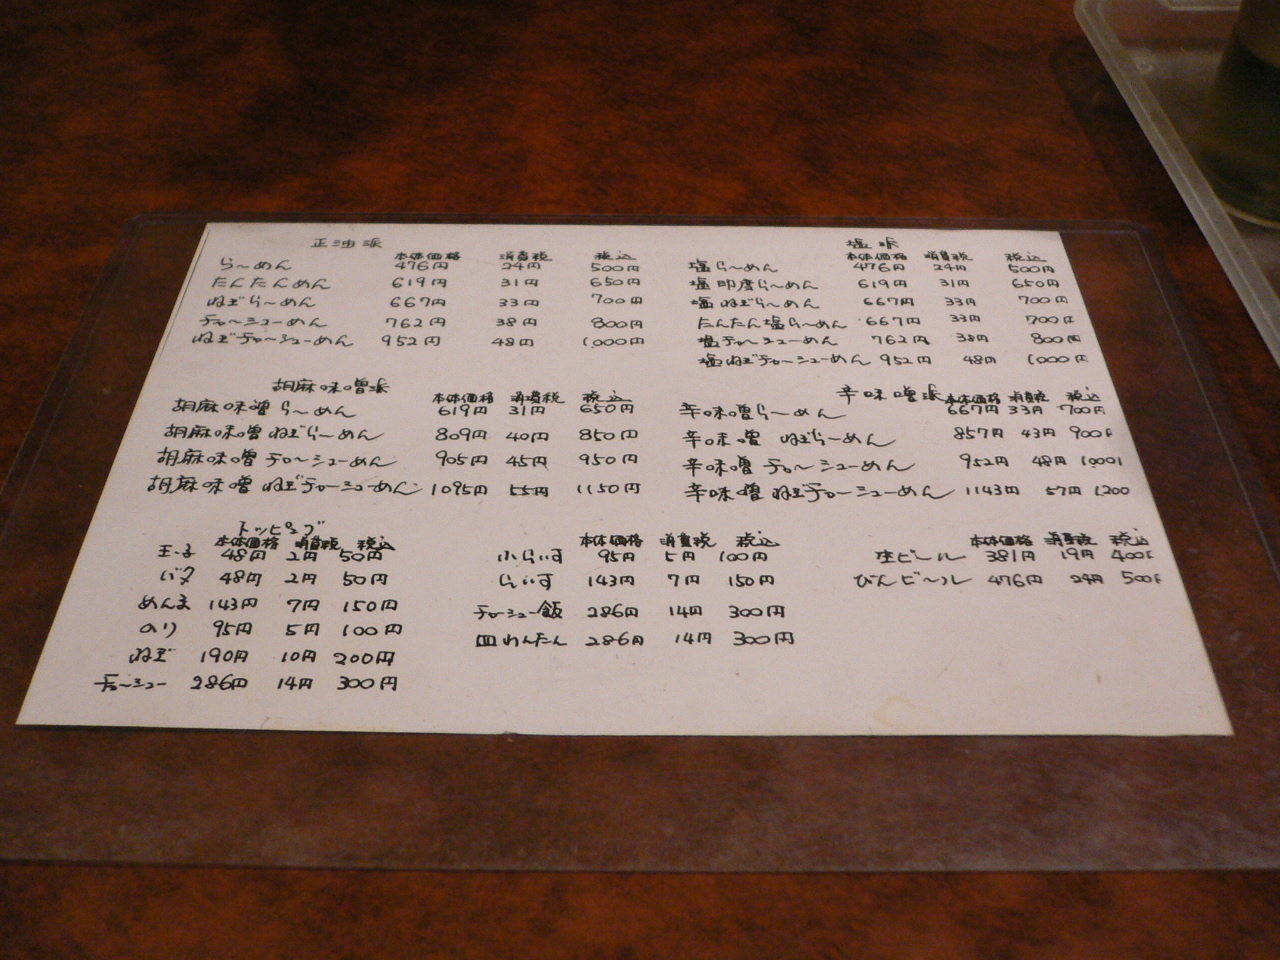 正油派
本体価格 消費税 税込
らーめん 476円 24円 500円
たんたんめん 619円 31円 650円
ねぎらーめん 667円 33円 700円
チャーシューめん 762円 38円 800円
ねぎチャーシューめん 952円 48円 1,000円
塩派
本体価格 消費税 税込
塩らーめん 476円 24円 500円
塩印度らーめん 619円 31円 650円
塩ねぎらーめん 667円 33円 700円
たんたん塩らーめん 667円 33円 700円
塩チャーシューめん 762円 38円 800円
塩ねぎチャーシューめん 952円 48円 1,000円
胡麻味噌派
本体価格 消費税 税込
胡麻味噌らーめん 619円 31円 650円
胡麻味噌ねぎらーめん 809円 40円 850円
胡麻味噌チャーシューめん 905円 45円 950円
胡麻味噌ねぎチャーシューめん 1095円 55円 1150円
辛味噌派
本体価格 消費税 税込
辛味噌らーめん 667円 33円 700円
辛味噌ねぎらーめん 857円 43円 900
辛味噌チャーシューめん 952円 48円 1000
辛味噌ねぎチャーシューめん 1143円 57円 1200
トッピング
本体価格 消費税 税込
玉子 48円 2円 50円
バタ 48円 2円 50円
めんま 143円 7円 150円
のり 95円 5円 100円
ねぎ 190円 10円 200円
チャーシュー 286円 14円 300円
本体価格 消費税 税込
小らいす 95円 5円 100円
らいす 143円 7円 150円
チャーシュー飯 286円 14円 300円
皿わんたん 286円 14円 300円
本体価格 消費税 税込
生ビール 381円 19円 400
びんビール 476円 24円 500